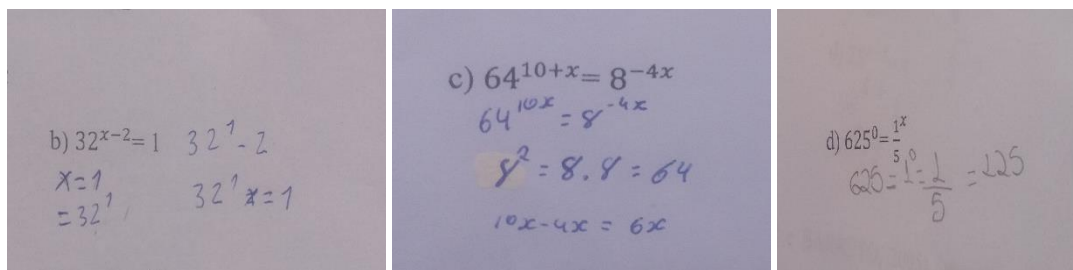 b) 32^{x-2} = 1 32^1 - 2
x = 1
= 32^1
32^1 x = 1
c) 64^{10+x} = 8^{-4x}
64^{10x} = 8^{-4x}
8^2 = 8.8 = 64
10x - 4x = 6x
d) 625^0 = \frac{1}{5}^x
625 = 1^0 = \frac{1}{5} = 125